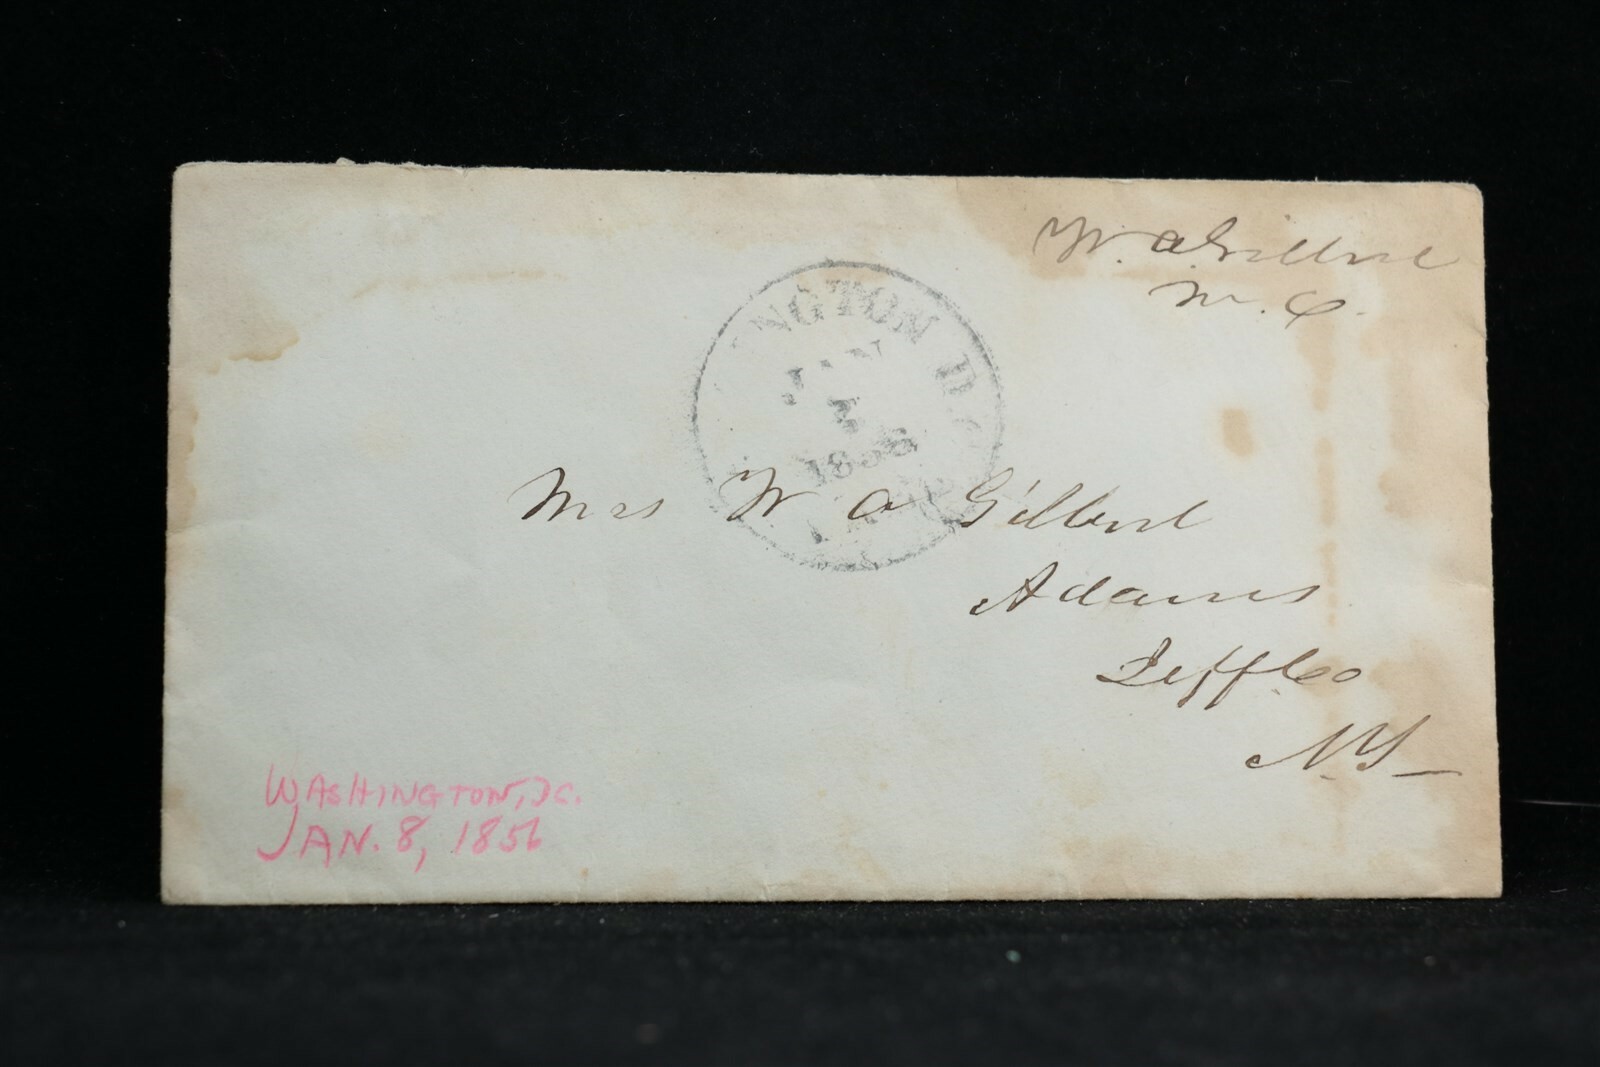 W. A. Gilbert
M. C.
NGTON D. C.
JAN
1856
Mrs W A Gilbert
Adams
Jeff Co
N.Y
WASHINGTON, DC.
JAN. 8, 1856